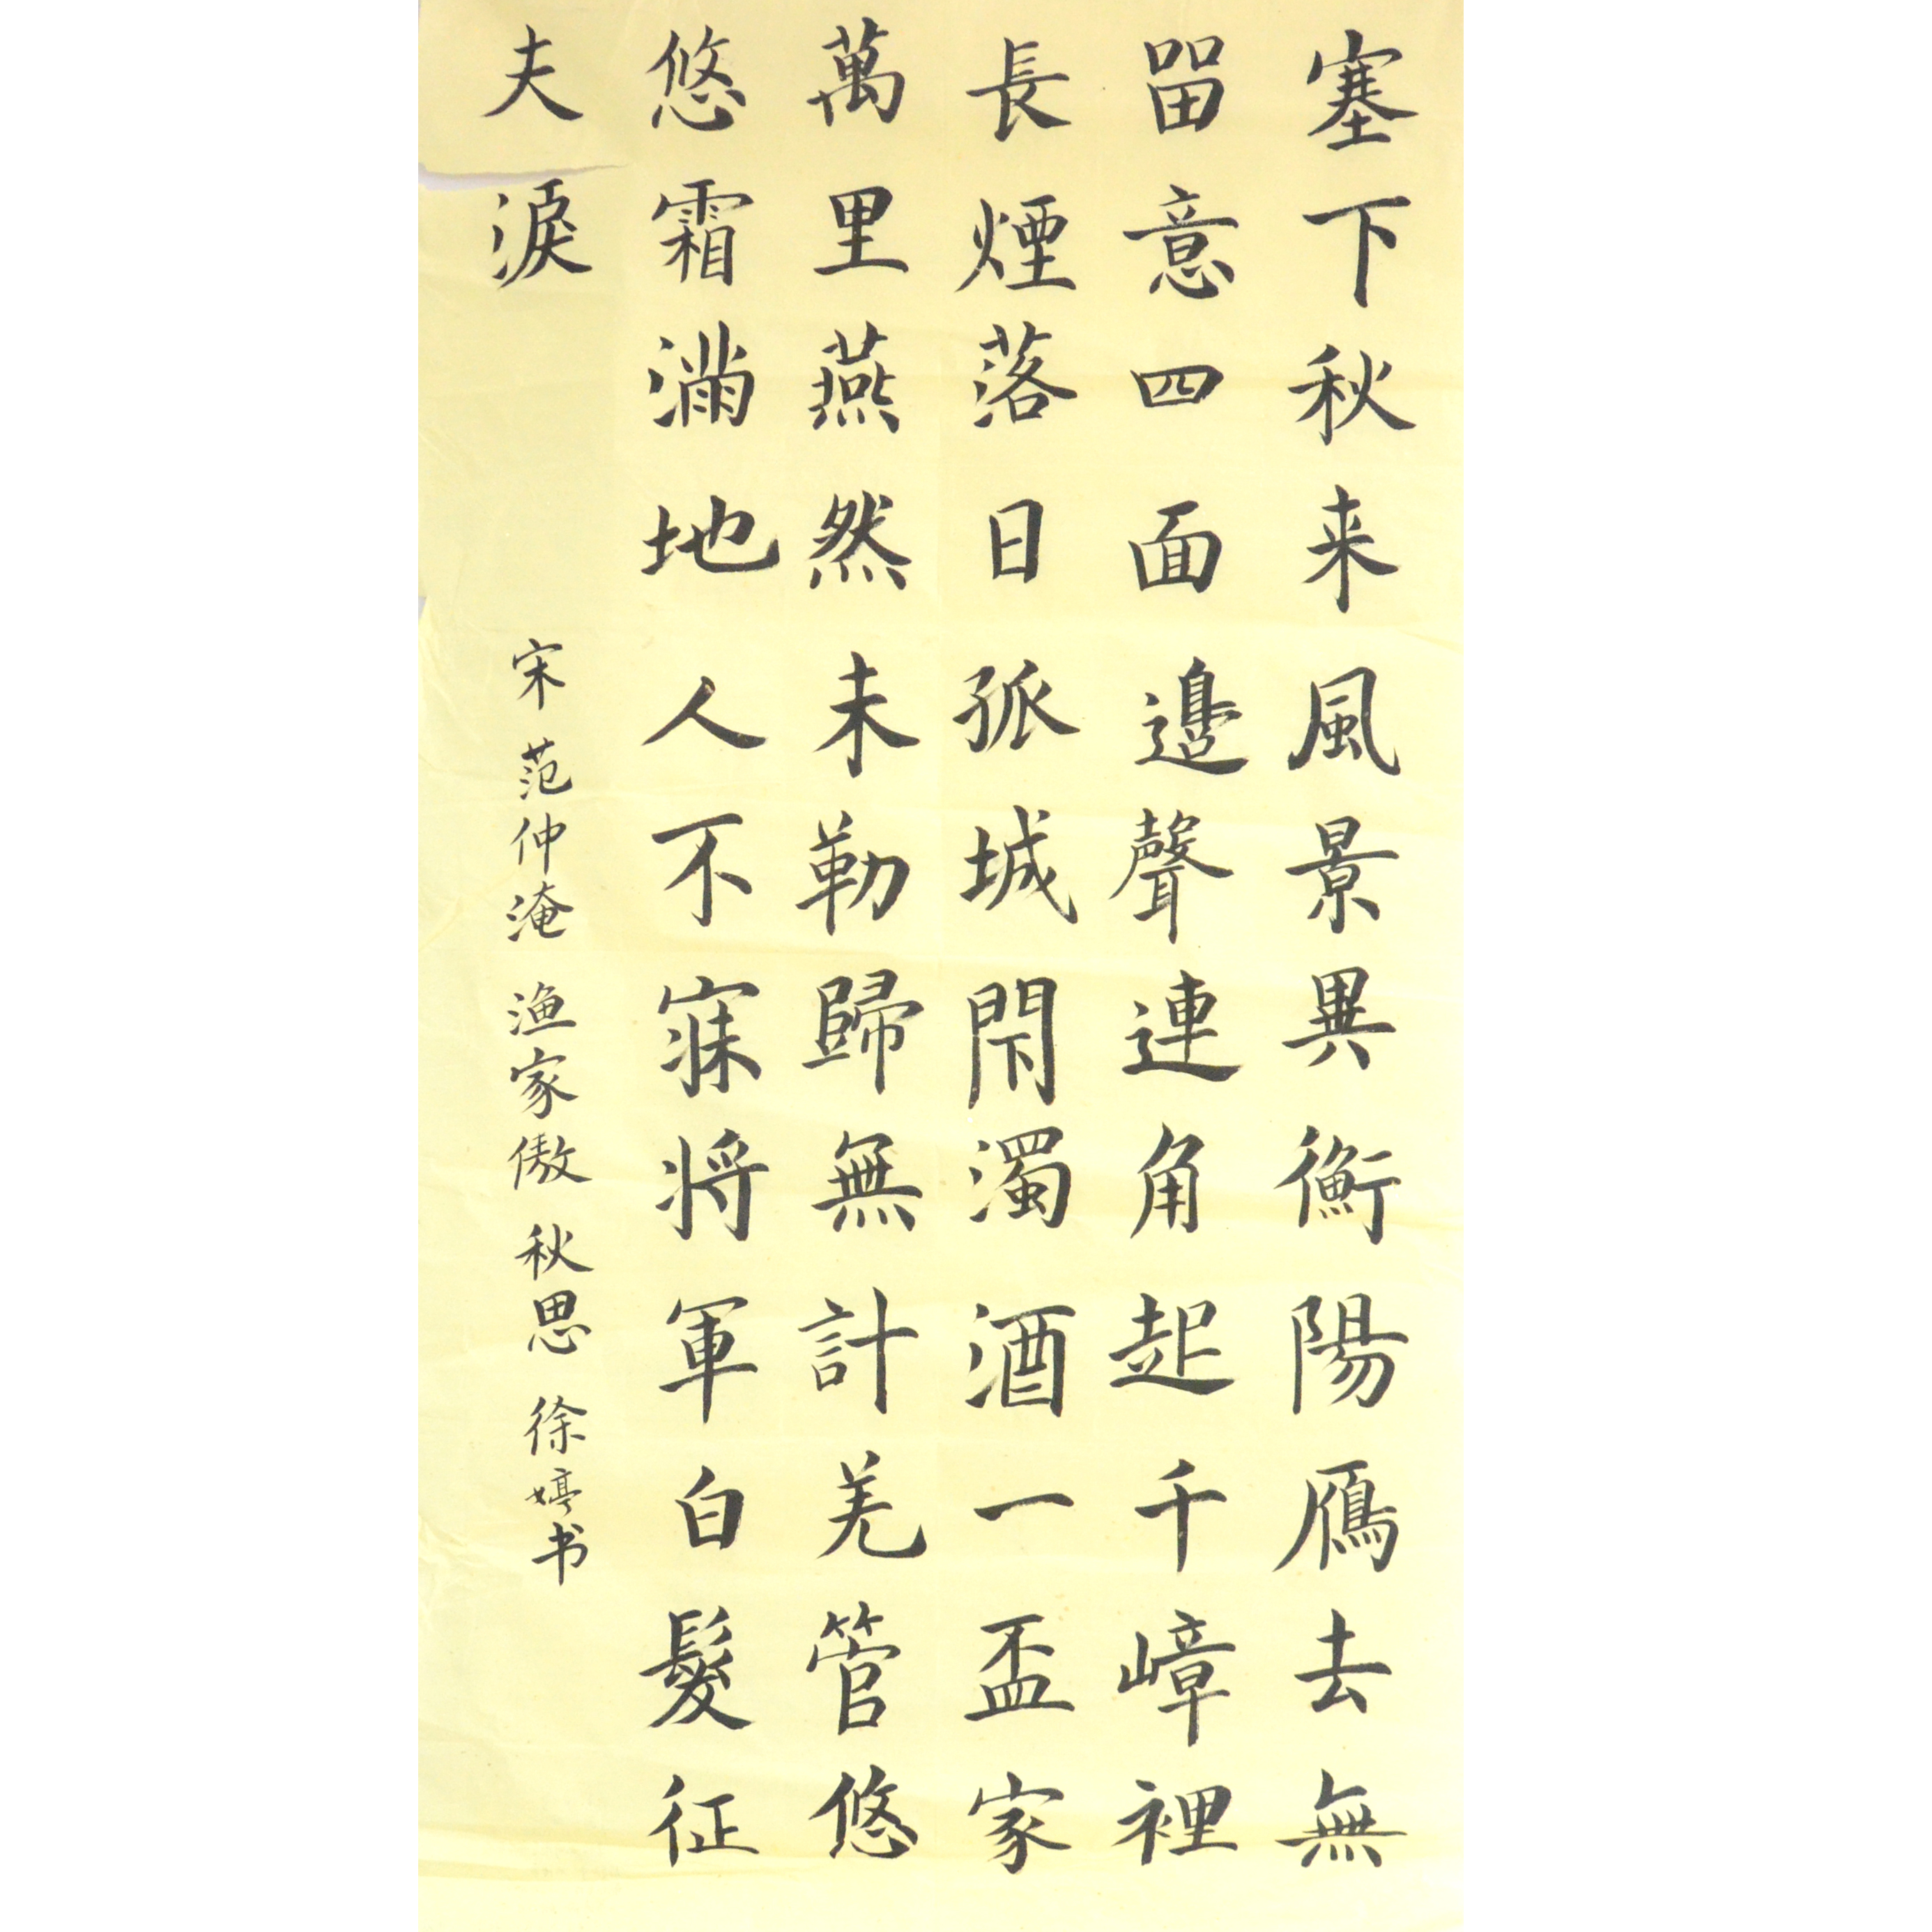 塞下秋来風景異衡陽鴈去無
留意四面邊聲連角起千嶂裡
長煙落日孤城閇濁酒一盃家
萬里燕然未勒歸無計羌管悠
悠霜滿地人不寐将軍白髮征
夫淚
宋 范仲淹 渔家傲 秋思 徐婷书